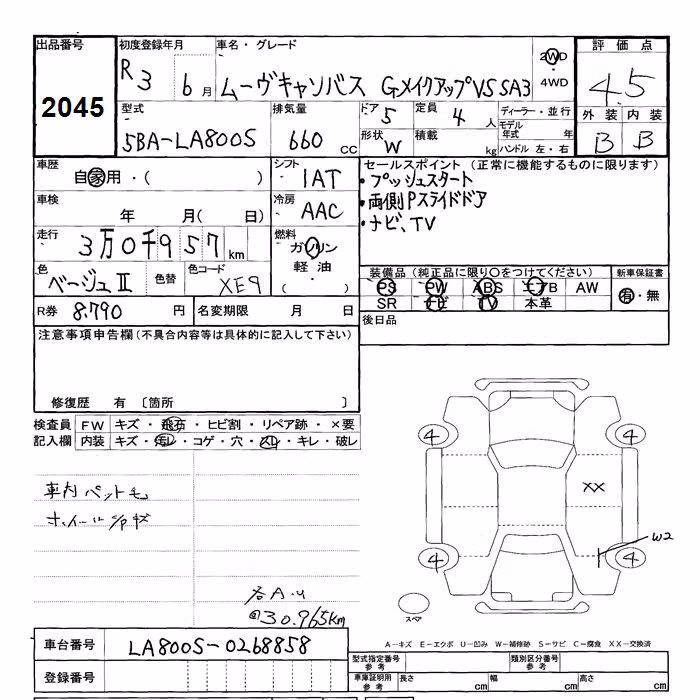 出品番号 初度登録年月 車名・グレード 評価点
2045
R3 6月 ムーヴキャンバス GメイクアップVS SA3 2WD・4WD 4.5
型式 排気量 ドア 定員 ディーラー・並行 外装 内装
5BA-LA800S 660CC 5 4人 モデル年式 年 B B
形状 W 積載 kg ハンドル 左・右
車歴 自家用・( ) シフト IAT セールスポイント(正常に機能するものに限ります)
・プッシュスタート
車検 年 月( 日) 冷房 AAC ・両側Pスライドドア
・ナビ、TV
走行 3万0千957km 燃料 ガソリン・軽油・( )
色 ベージュII 色替 色コード XE9 装備品(純正品に限り○をつけてください) 新車保証書
PS PW ABS エアB AW 有・無
SR ナビ TV 本革
R券 8,790円 名変期限 月 日 後日品
注意事項申告欄(不具合内容等は具体的に記入して下さい)
修復歴 有 〔箇所 〕
検査員記入欄 FW キズ・飛石・ヒビ割・リペア跡・×要
内装 キズ・汚レ・コゲ・穴・スレ・キレ・破レ
車内ペット毛
ホイール
@30,965km
4 4
XX
4 4
W2
スペア
A-キズ E-エクボ U-凹み W-補修跡 S-サビ C-腐食 XX-交換済
車台番号 LA800S-0268858
型式指定番号 参考 類別区分番号 参考
登録番号
車庫証明用 参考 長さ cm 幅 cm 高さ cm